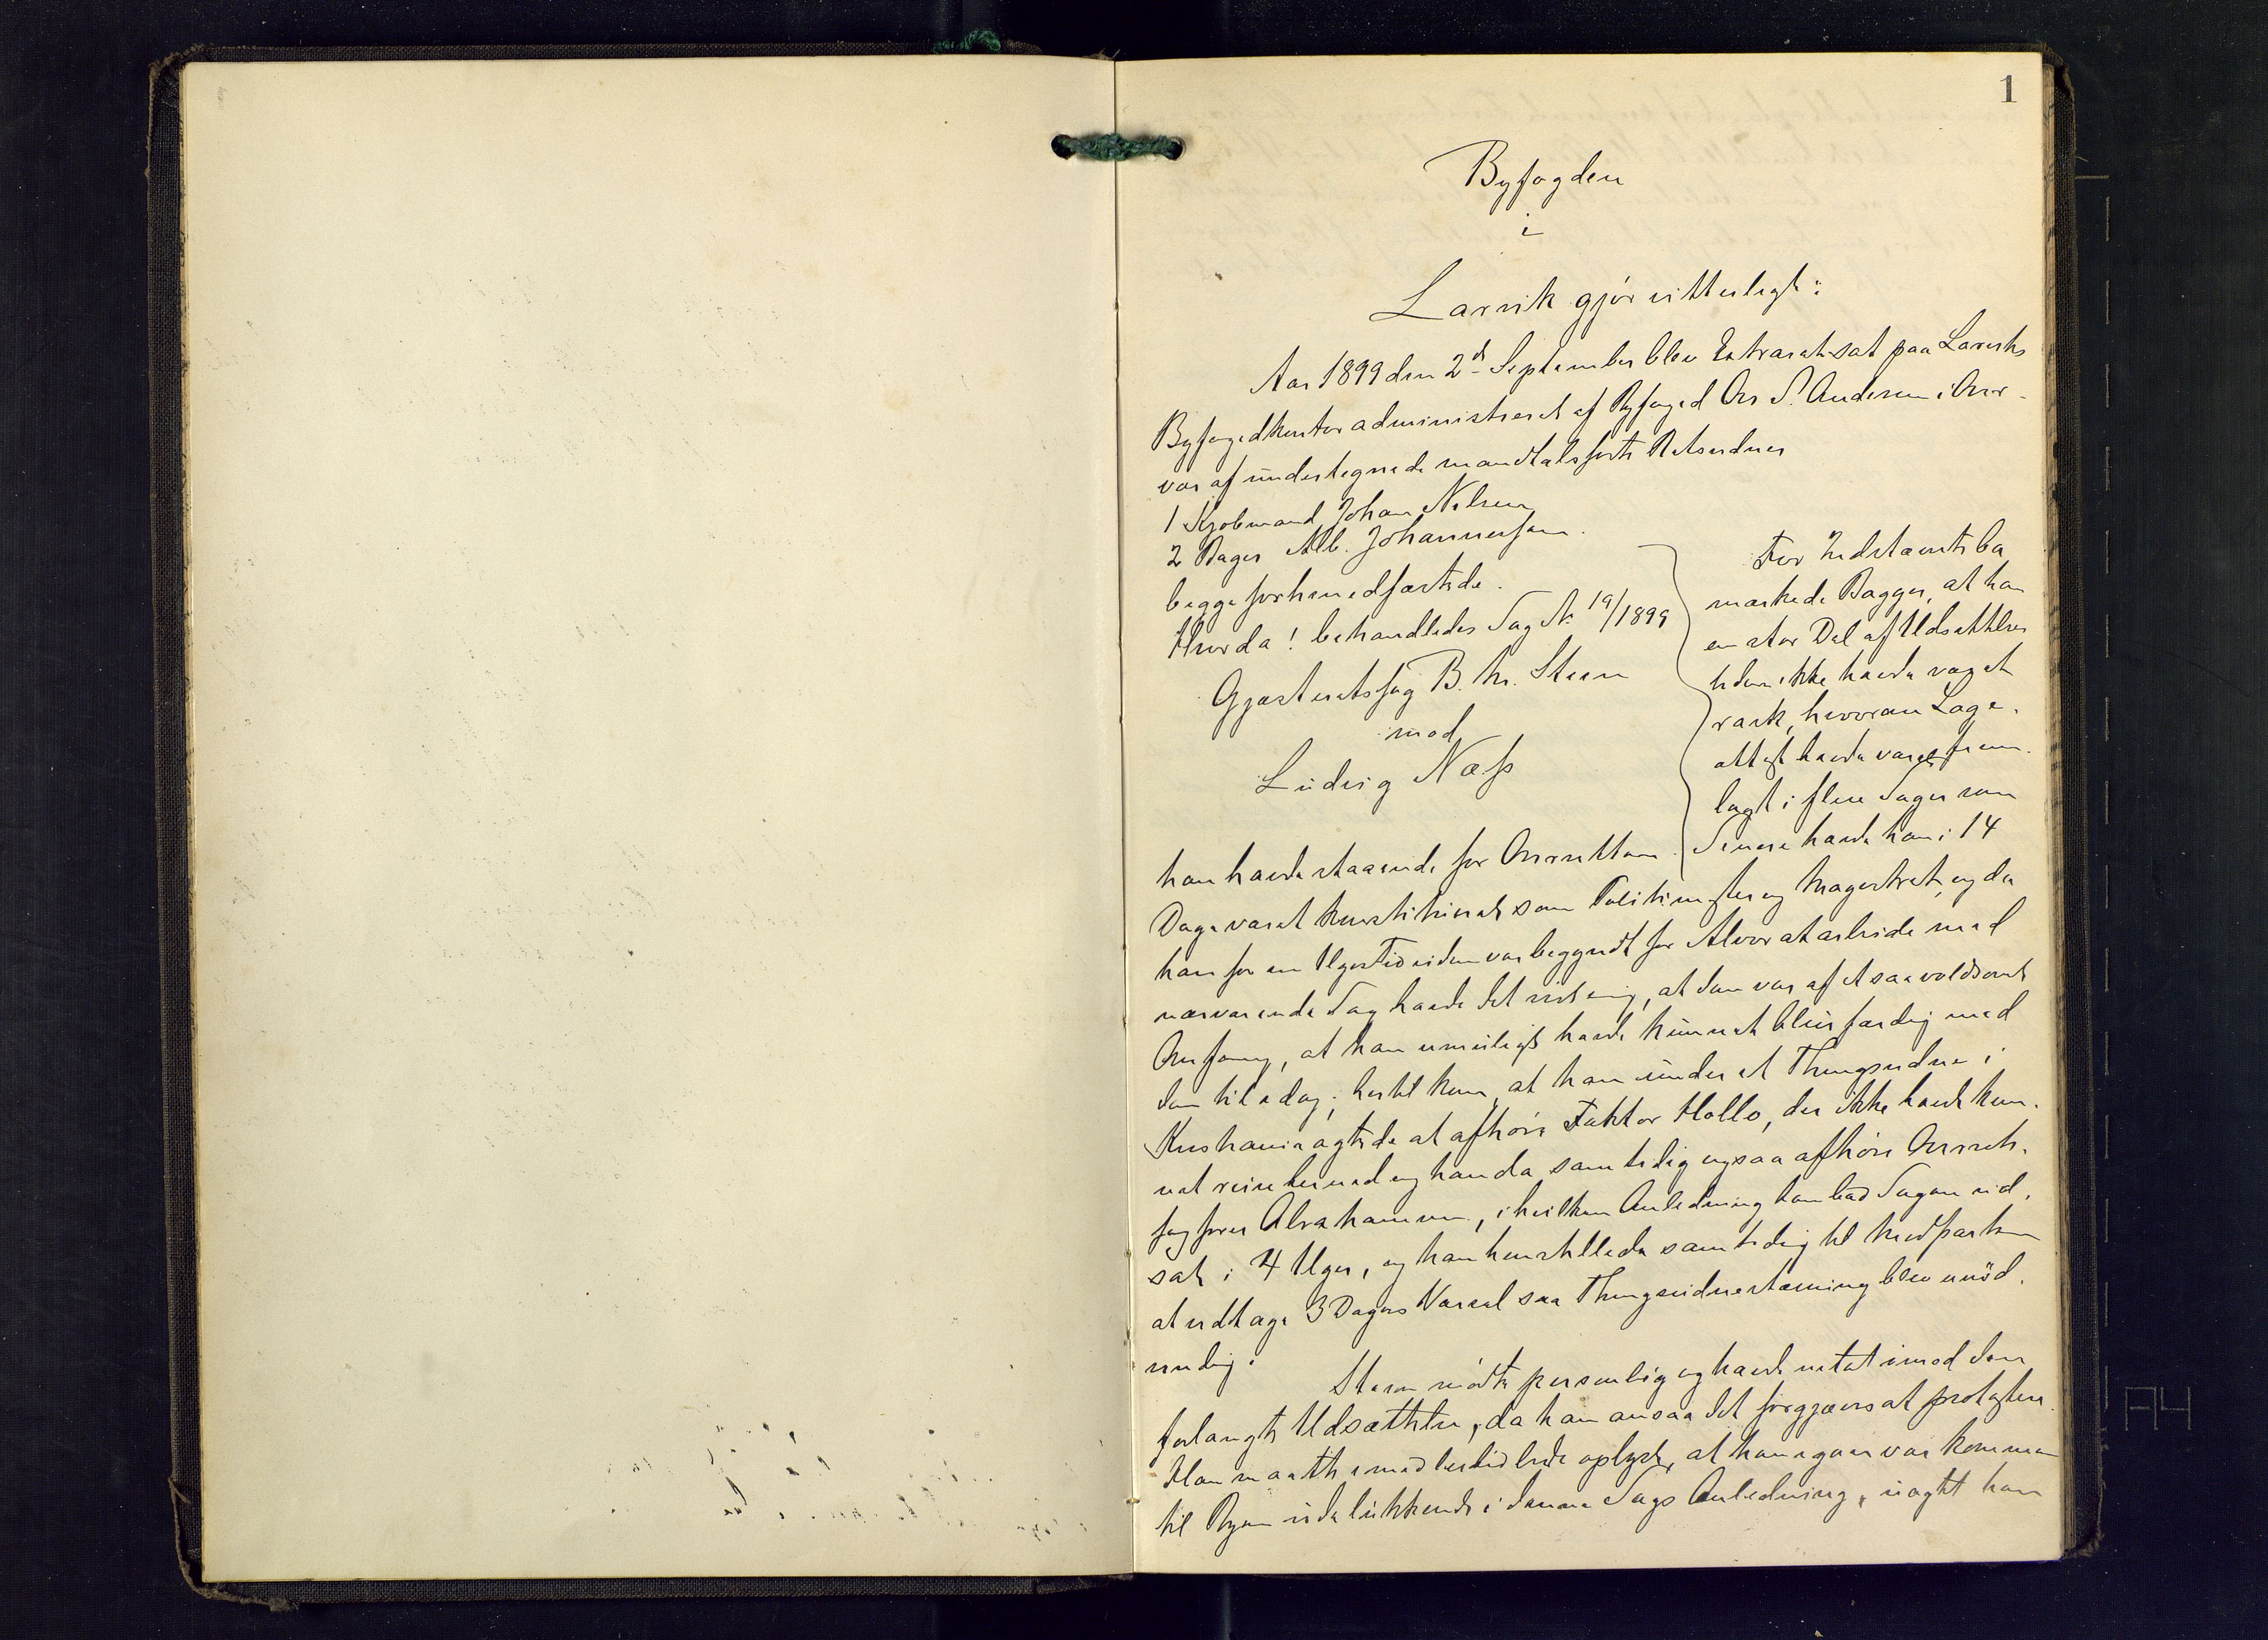 1
Byfogden
i
Larvik gjör vitterligt:
Aar 1899 den 2d September blev Extraret sat paa Larviks
Byfogedkontor administreret af Byfoged Ove S. Andersen i Over-
vær af undertegnede mandtalsförte Retsvidner
1 Kjøbmand Johan Nilsen
2 Bager Alb. Johannessen.
begge forhen edfæstede.
Hvorda! behandledes Sag No 19/1899
Gjæsteretssag B. M. Steen
mod
Ludvig Næss
For Indstævnte be
mærkede Bagger, at han
en stor Del af Udsættelses
tiden ikke havde været
rask, hvorom Læge-
attest havde været frem-
lagt i flere Sager som
han havde staaende for Overretten. Senere havde han i 14
Dage været konstitueret som Politimester og Magistrat, og da
han for en Uges Tid siden var begyndt for Alvor at arbeide med
nærværende Sag havde det vist sig, at den var af et saa voldsomt
Omfang, at han umuligt havde kunnet blive færdig med
den til idag; hertil kom, at han under et Thingsvidne i
Kristiania agtede at afhöre Faktor Holbo, der ikke havde kun-
net reise herned og han da samtidig ogsaa afhöre Overrets-
sagförer Abrahamsen, i hvilken Anledning han bad Sagen ud-
sat i 4 Uger, og han henstillede samtidig til Modparten
at vedtage 3 Dages Varsel saa Thingsvidnestævning blev unöd-
vendig.
Steen mödte personlig og havde intet imod den
forlangte Udsættelse, da han ansaa det forgjæves at protestere.
Han maatte imidlertid bede oplyst, at han igaar var kommen
til Byen udelukkende i denne Sags Anledning, uagtet han